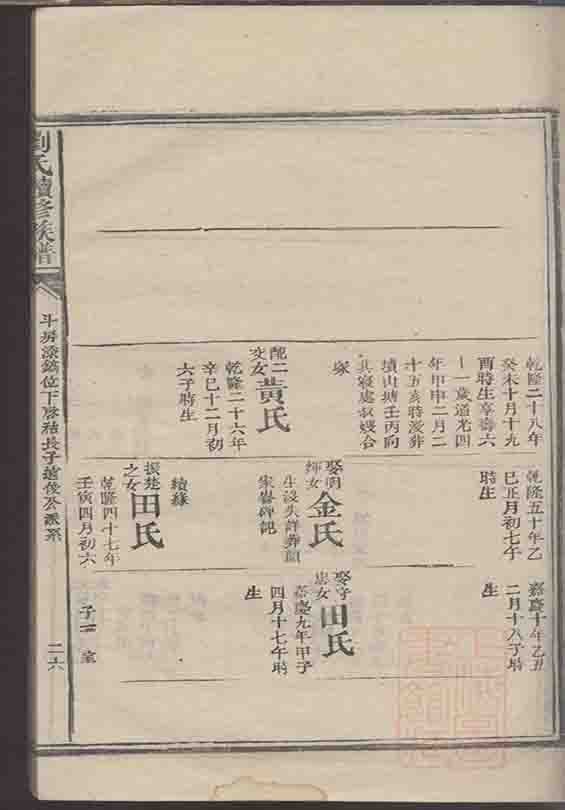 乾隆二十八年
癸未十月十九
酉時生享壽六
十一歲道光四
年甲申二月二
十五亥時歿葬
墳山塘壬丙向
其寢處叔嫂合
塚
配二
交女
黃氏
乾隆二十六年
辛巳十二月初
六子時生
乾隆五十年乙
巳正月初七午
時生
娶明
輝女
金氏
生沒失詳葬顏
家嶴碑記
續緣
振楚
之女
田氏
乾隆四十七年
壬寅四月初六
嘉慶十年乙丑
二月十八子時
生
娶守
忠女
田氏
嘉慶九年甲子
四月十七午時
生
子三 童
劉氏續修族譜
位下
長子
俊公派系
二六